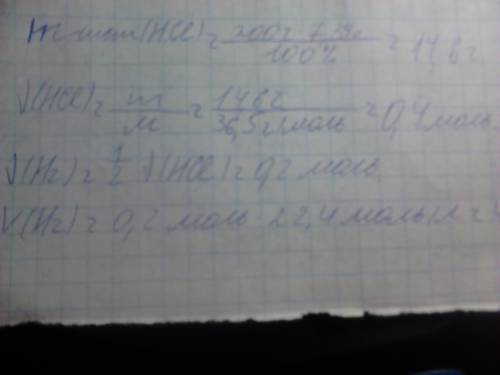 m (HCl) = 200г · 7,3% / 100% = 14,6г
ν(HCl) = m / M = 14,6г / 36,5г/моль = 0,4 моль
ν(H₂) = 1/2 ν(HCl) = 0,2 моль
V(H₂) = 0,2 моль · 22,4 моль/л = 4